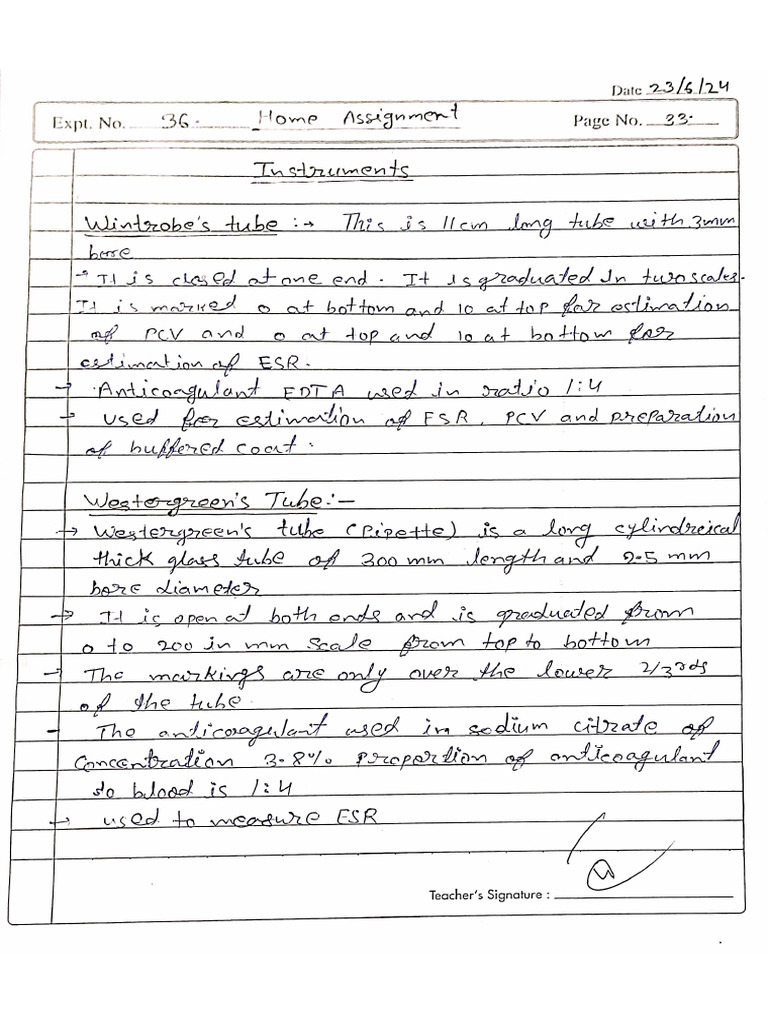 Date 23/6/24
Expt. No. 36. Home Assignment Page No. 33.
Instruments
Wintrobe's tube :→ This is 11cm long tube with 3mm
bore
- It is closed at one end. It is graduated In two scales.
It is marked 0 at bottom and 10 at top for estimation
of PCV and 0 at top and 10 at bottom for
estimation of ESR.
→ Anticoagulant EDTA used in ratio 1:4
→ used for estimation of ESR, PCV and preparation
of buffered coat.
Westergreen's Tube:-
→ Westergreen's tube (Pipette) is a long cylindreical
thick glass tube of 300 mm length and 2.5 mm
bore diameter
→ It is open at both ends and is graduated from
0 to 200 in mm scale from top to bottom
→ The markings are only over the lower 2/3rds
of the tube.
- The anticoagulant used in sodium citrate of
Concentration 3.8% Proportion of anticoagulant
to blood is 1:4
→ used to measure ESR
Teacher's Signature :